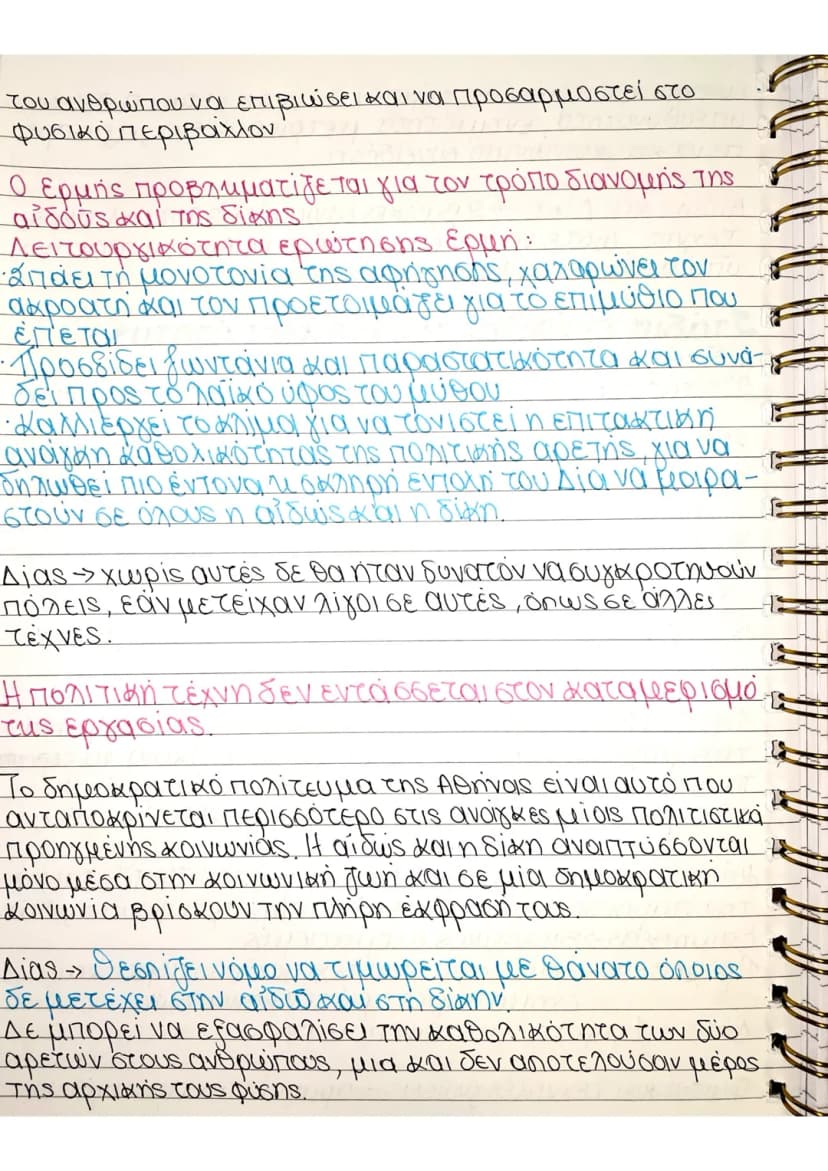 του ανθρώπου να επιβιώσει και να προσαρμοστεί στο
φυσικό περιβάλλον
Ο Ερμής προβληματίζεται για τον τρόπο διανομής της
αἰδοῦς και της δίκης
Λειτουργικότητα ερώτησης Ερμή:
·Σπάει τη μονοτονία της αφήγησης, χαλαρώνει τον
ακροατή και τον προετοιμάζει για το επιμύθιο που
έπεται
·Προσδίδει ζωντάνια και παραστατικότητα και συνά-
δει προς το λαϊκό ύφος του μύθου
·Καλλιεργεί το κλίμα για να τονιστεί η επιτακτική
ανάγκη καθολικότητας της πολιτικής αρετής, για να
δηλωθεί πιο έντονα η σκληρή εντολή του Δία να μοιρα-
στούν σε όλους η αἰδώς και η δίκη.
Δίας → χωρίς αυτές δε θα ήταν δυνατόν να συγκροτηθούν
πόλεις, εάν μετείχαν λίγοι σε αυτές, όπως σε άλλες
τέχνες.
Η πολιτική τέχνη δεν εντάσσεται στον καταμερισμό
της εργασίας.
Το δημοκρατικό πολίτευμα της Αθήνας είναι αυτό που
ανταποκρίνεται περισσότερο στις ανάγκες μίας πολιτιστικά
προηγμένης κοινωνίας. Η αἰδώς και η δίκη αναπτύσσονται
μόνο μέσα στην κοινωνική ζωή και σε μία δημοκρατική
κοινωνία βρίσκουν την πλήρη έκφρασή τους.
Δίας → Θεσπίζει νόμο να τιμωρείται με θάνατο όποιος
δε μετέχει στην αἰδώ και στη δίκην.
Δε μπορεί να εξασφαλίσει την καθολικότητα των δύο
αρετών στους ανθρώπους, μια και δεν αποτελούσαν μέρος
της αρχικής τους φύσης.